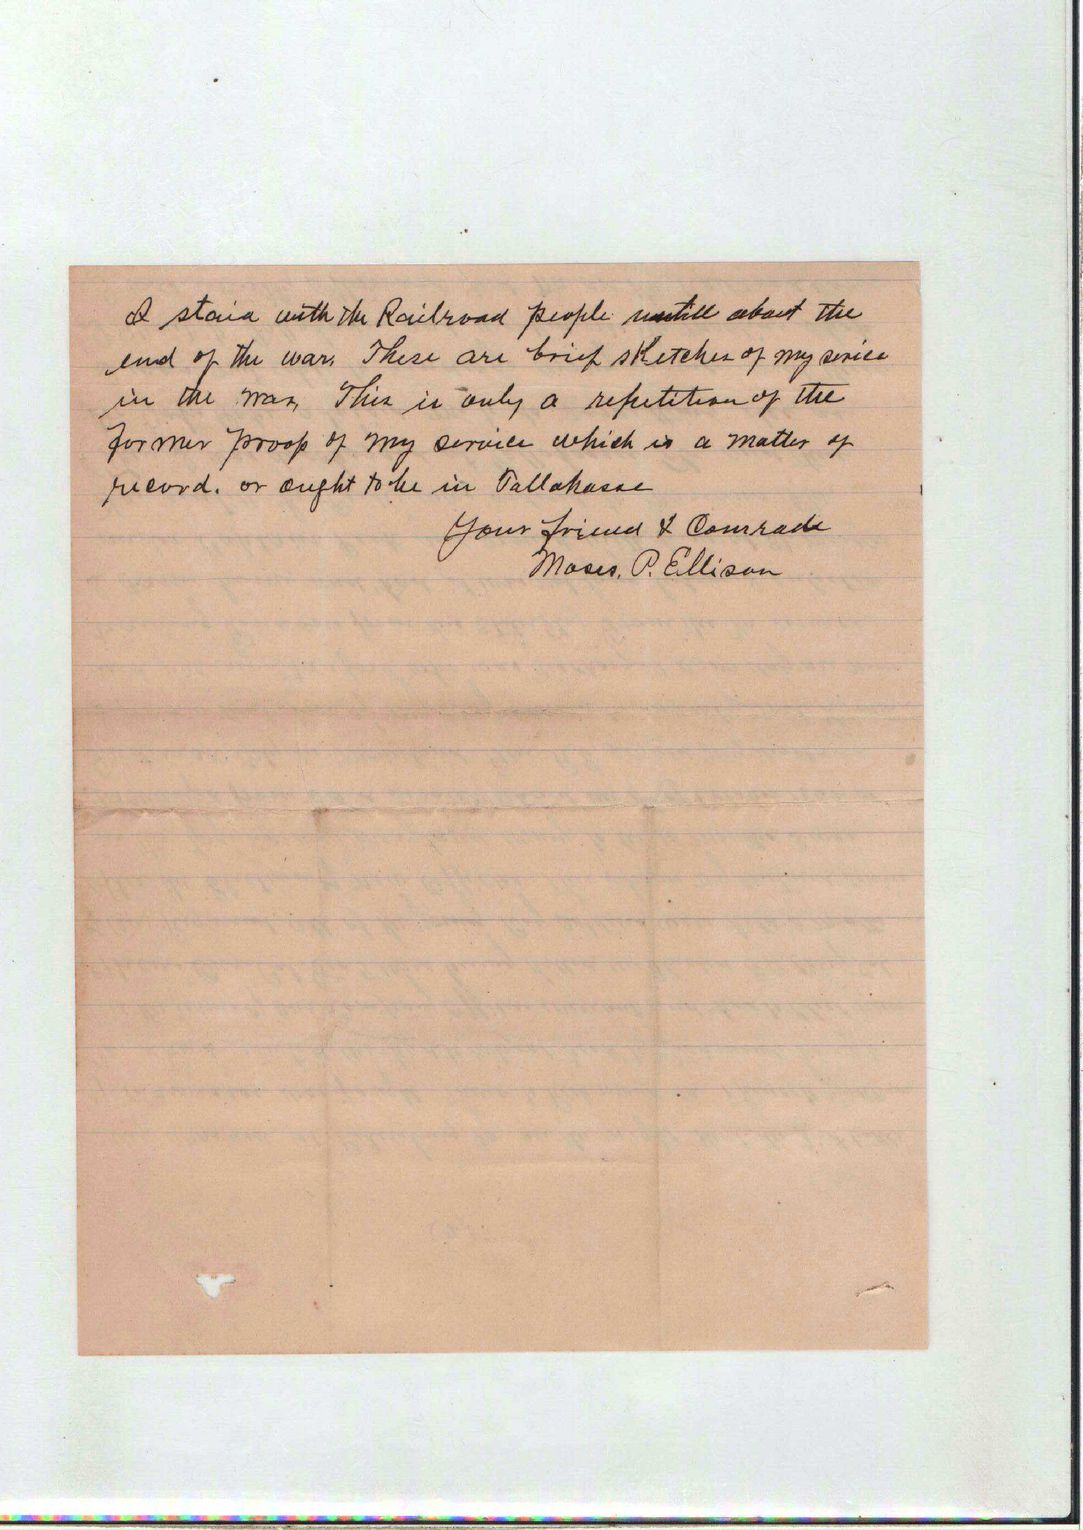 I staid with the Railroad people untill about the
end of the war. These are brief sketches of my servise
in the war, This is only a repetition of the
former proof of my service which is a matter of
record. or ought to be in Tallahasse
Your friend & Comrade
Moses. P. Ellison